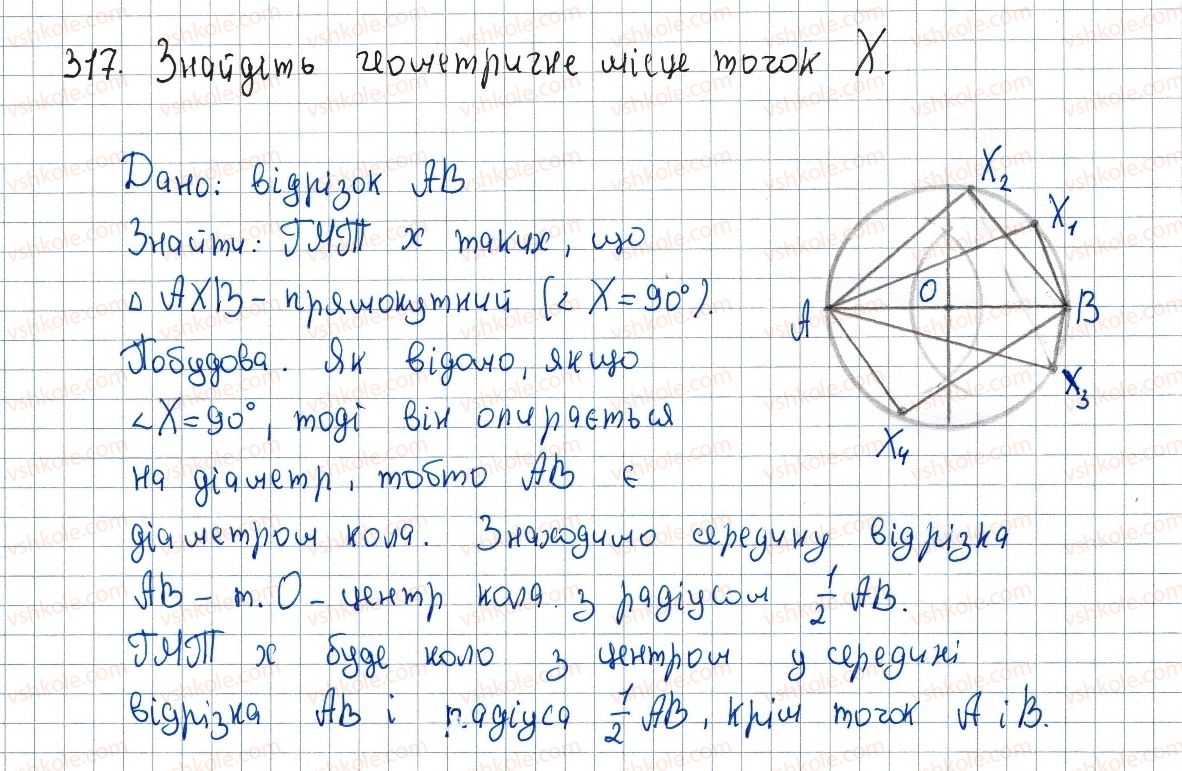 317. Знайдіть геометричне місце точок X.
Дано: відрізок AB
Знайти: ГМТ x таких, що
△ AXB – прямокутний (∠ X = 90°).
Побудова. Як відомо, якщо
∠X = 90°, тоді він опирається
на діаметр, тобто AB є
діаметром кола. Знаходимо середину відрізка
AB – т. O – центр кола з радіусом 1/2 AB.
ГМТ x буде коло з центром у середині
відрізка AB і радіуса 1/2 AB, крім точок A і B.
X₂
X₁
A
O
B
X₃
X₄
vshkole.com